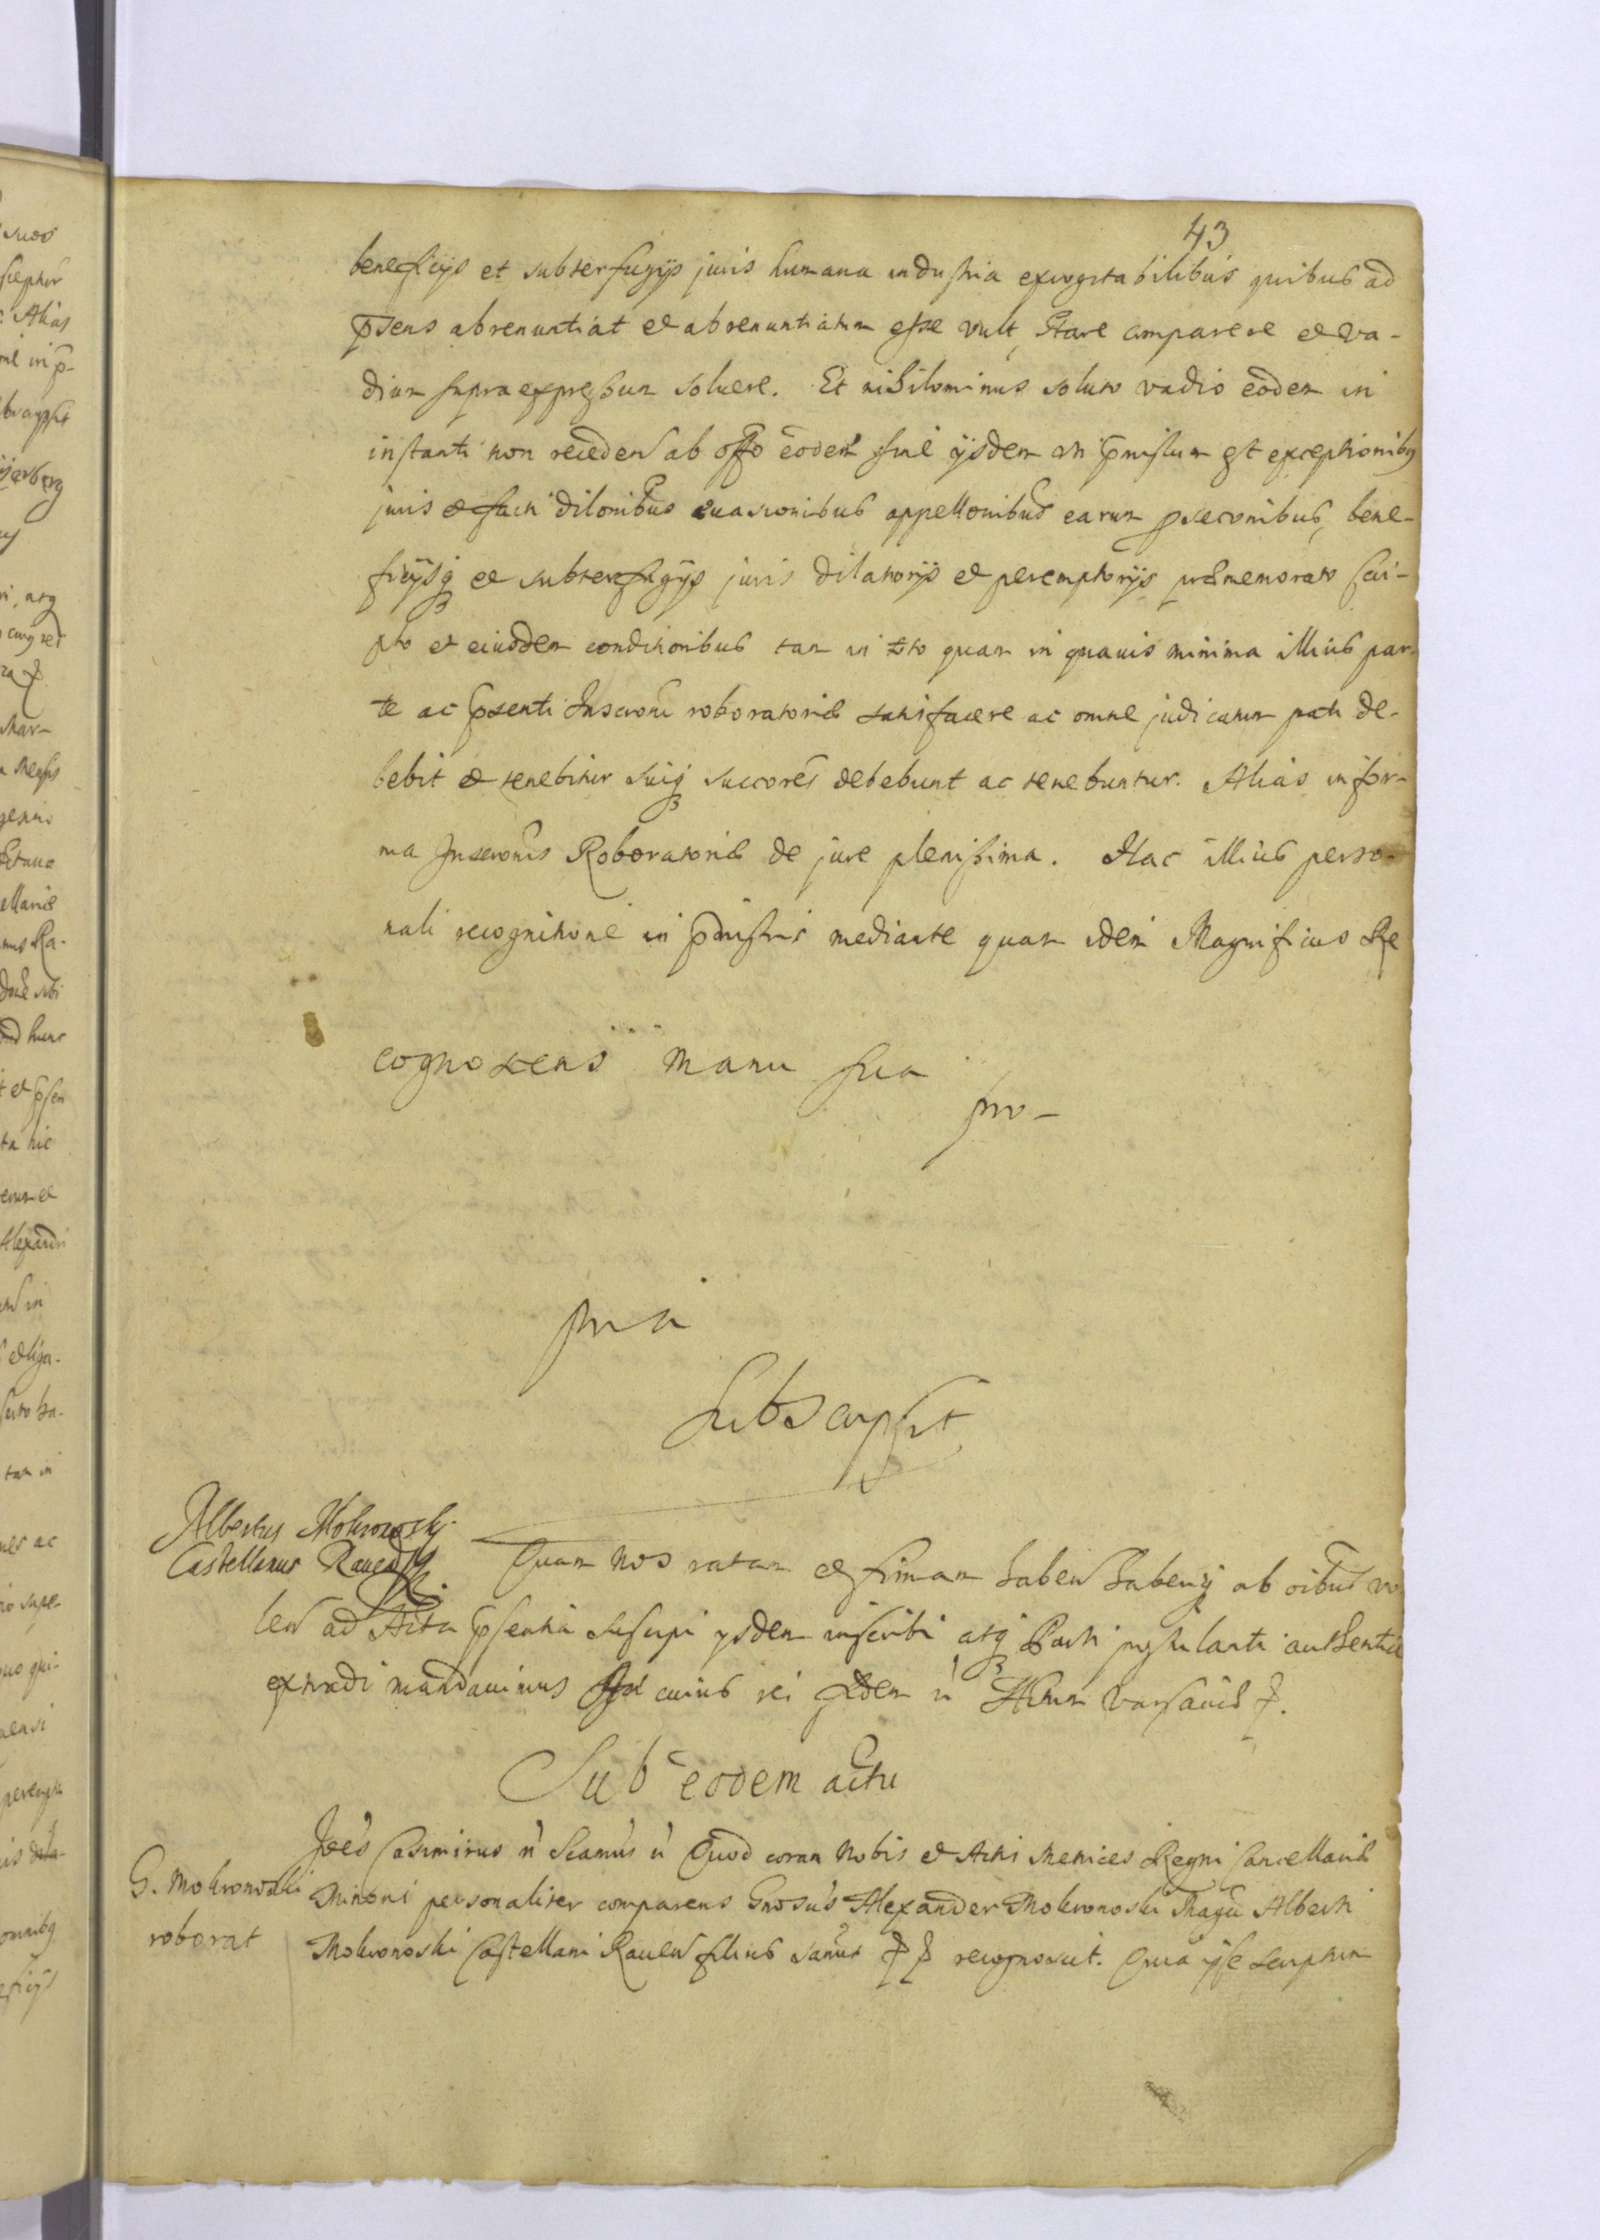 43
beneficijs et subterfugijs juris humana industria excogitabilibus quibus ad
p̄sens abrenuntiat et abrenuntiatum esse vult, Stare comparere et va-
dium supraexpressum soluere. Et nihilominus soluto vadio eodem in
instanti non recedens ab offo eodem sine ijsdem uti p̄missum est exceptionibus
juris et facti dilōnibus euasionibus appellōnibus earum p̄secōnibus, bene-
ficijsq et subterfugijs juris dilatorijs et peremptorijs prǣmemorato scri-
pto et eiusdem conditionibus tam in toto quam in quauis minima illius par-
te ac p̄senti Inscrōni roboratoriæ satisfacere ac omne judicatum pati de-
bebit et tenebitur suiq succores debebunt ac tenebuntur. Alias in for-
ma Inscrōnis Roboratoriæ de jure plenissima. Hac illius perso-
nali recognitione in p̄missis mediante quam idem Magnificus Re
cognoscens manu sua
pro-
pria
Subscripsit
Albertus Mokronoski
Castellanus Rauensis
Quam nos ratam et firmam haben habentq ab oibus vo
len ad Acta p̄sentia suscipi ijsdem inscribi atq Parti postulanti authentice
extradi mandauimus cuius rei fidem Actum Varsauiæ
Sub eodem actu
G. Mokronoski
roborat
Joēs Casimirus n̄ Scamus n̄ Quod coram Nobis et Actis Metrices Regni Cancellariæ
Minoris personaliter comparens Gnosus Alexander Mokronoski Magci Alberti
Mokronoski Castellani Rauen filius sanus recognouit. Quia ipse scriptum